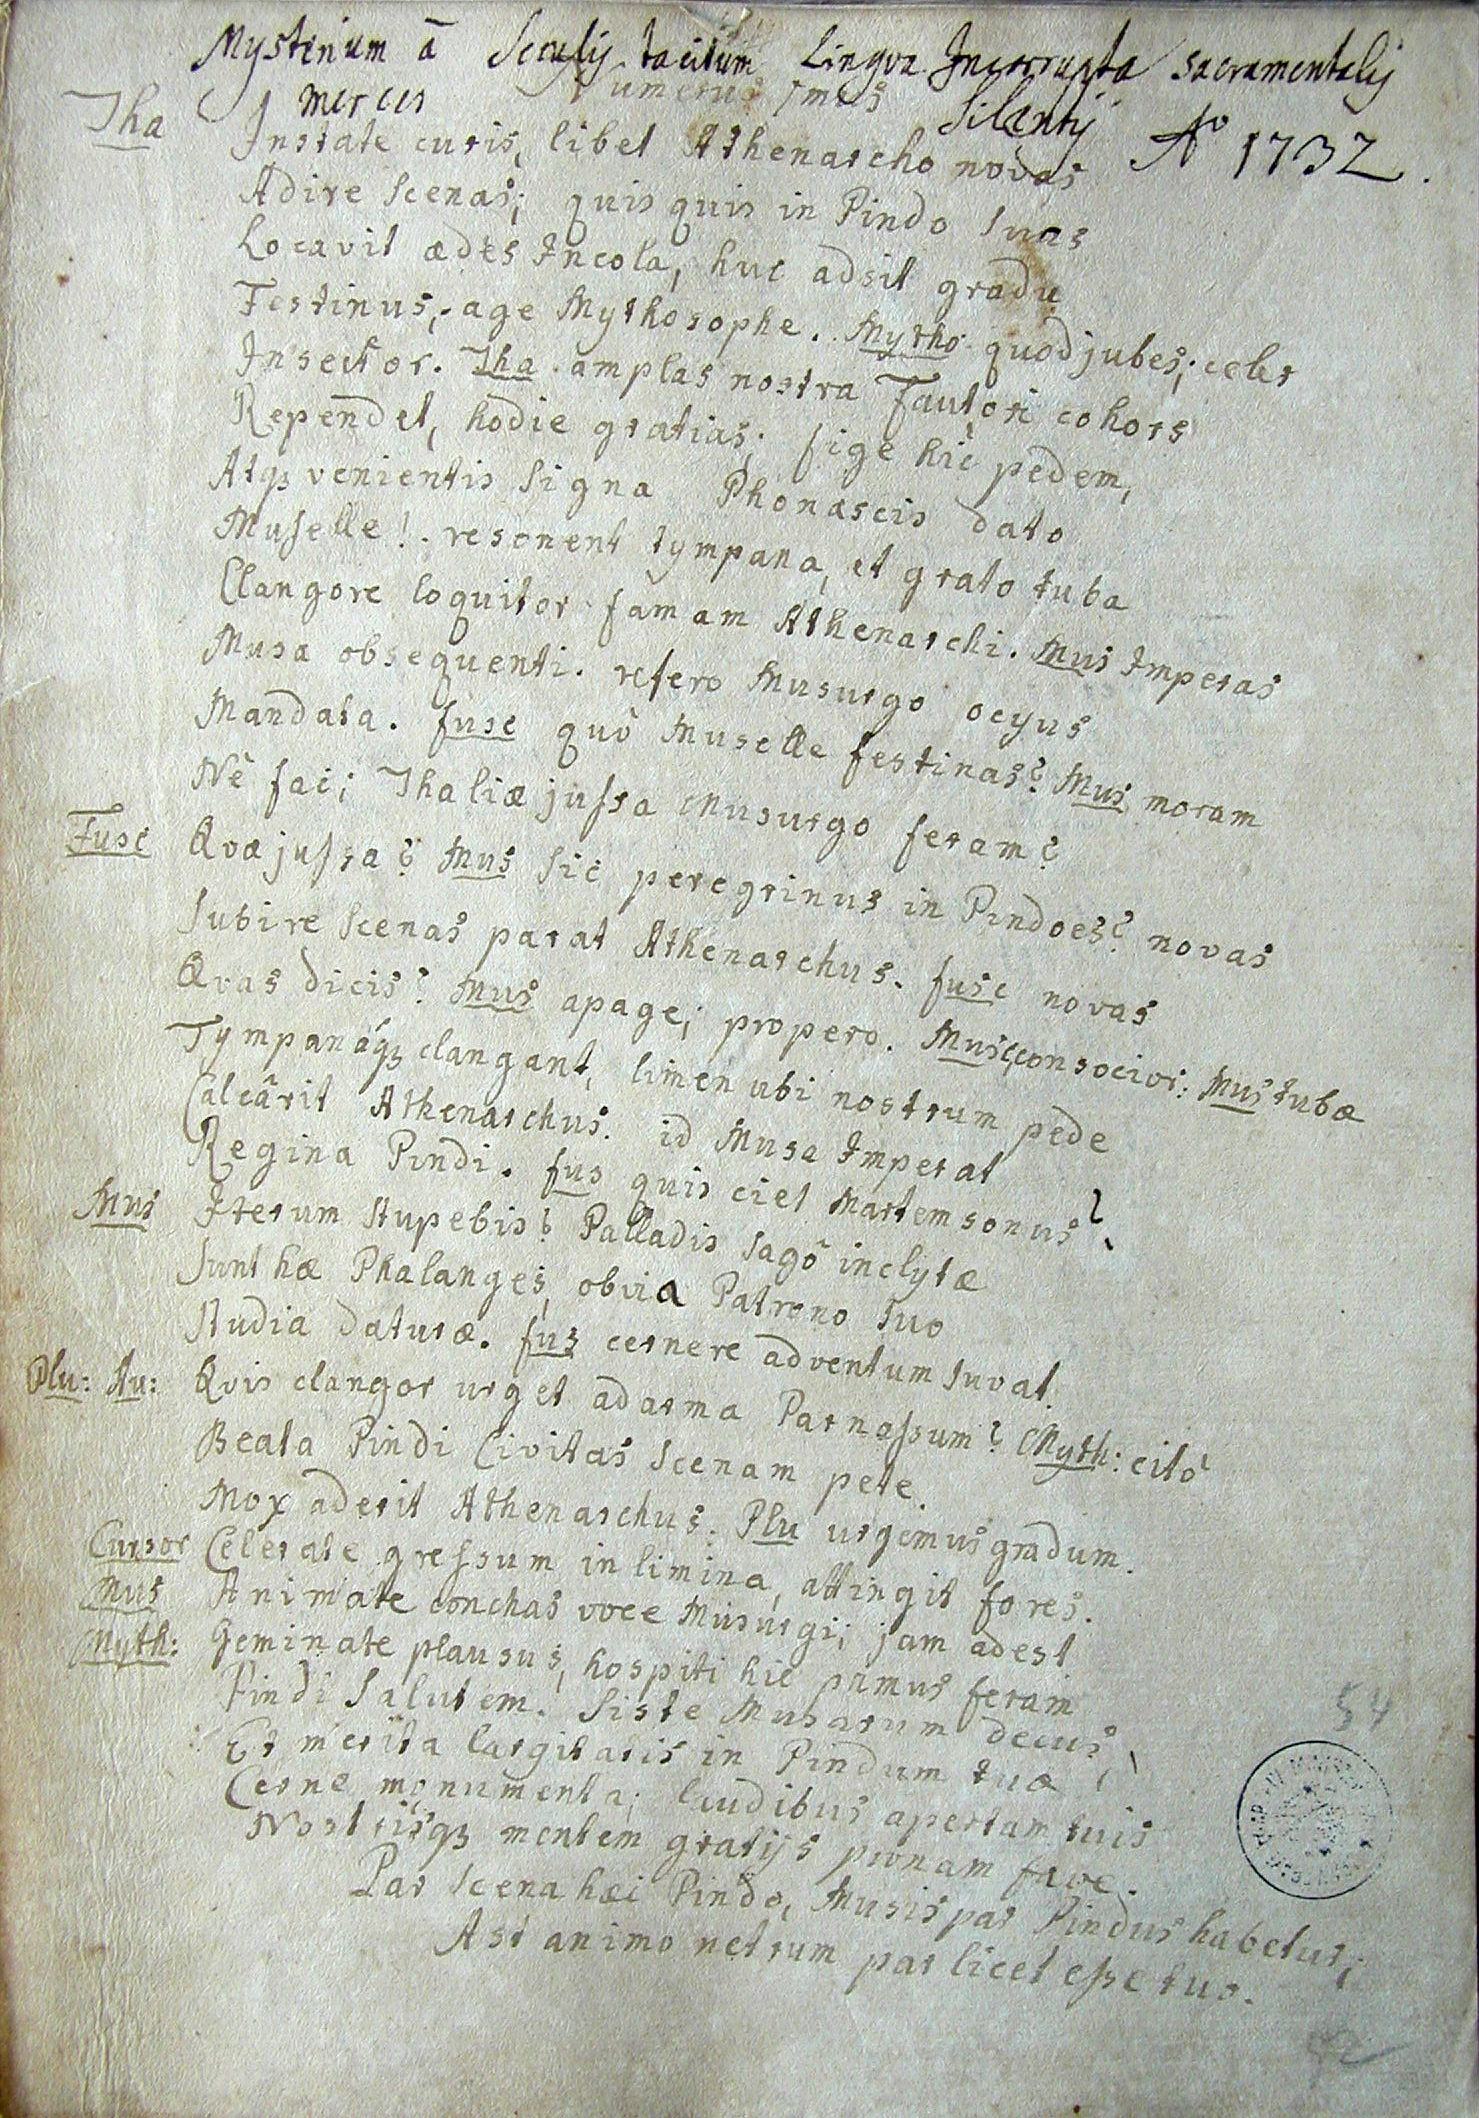 Mysterium â Seculis tacitum Lingva Incorrupta sacramentalis
merces Numerus Imus Silentij Aº 1732.
Tha Instate curis, libet Athenarcho novas
Adire scenas; quis quis in Pindo suas
Locavit ædes Incola, huc adsit gradu
Festinus, age Mythosophe. Mytho quod jubes; celer
Insector. Tha amplas nostra Fautori cohors
Rependet, hodie gratias; fige hic pedem,
Atqꝫ venientis signa Phonascis dato
Muselle! resonent tympana, et grato tuba
Clangore loquitor famam Athenarchi. Mus Imperas
Musa obsequenti. refero Musurgo ocyus
Mandata. fusc quò Muselle festinas? Mus moram
Nè fac; Thaliæ jussa Musurgo feram?
Fusc Qvæ jussa? Mus Sic peregrinus in Pindo es? novas
Subire scenas parat Athenarchus. fusc novas
Qvas dicis? Mus apage; propero. Musc, consocior: Mus tubæ
Tympanáqꝫ clangant, limen ubi nostrum pede
Calcârit Athenarchus. id Musa Imperat
Regina Pindi. fus quis ciet Martem sonus?
Mus Iterum stupebis? Palladis sagô inclytæ
Sunt hæ Phalanges, obvia Patrono suo
Studia daturæ. fus cernere adventum juvat.
Plu: Au: Qvis clangor urget ad arma Parnassum? Myth: citò
Beata Pindi Civitas scenam pete.
Mox aderit Athenarchus. Plu urgemus gradum.
Cursor Celerate gressum in limina, attingit fores.
Mus Animate conchas voce Musurgi; jam adest
Myth: Geminate plausus, hospiti hic primus feram
Pindi Salutem. Siste Musarum decus,
Et merita largitatis in Pindum tuæ
Cerne monumenta; laudibus apertam tuis
Nostrisqꝫ mentem gratijs pronam fave.
Par scena hæc Pindo, Musis par Pindus habetur;
Ast animo netrum par licet esse tuo.
54